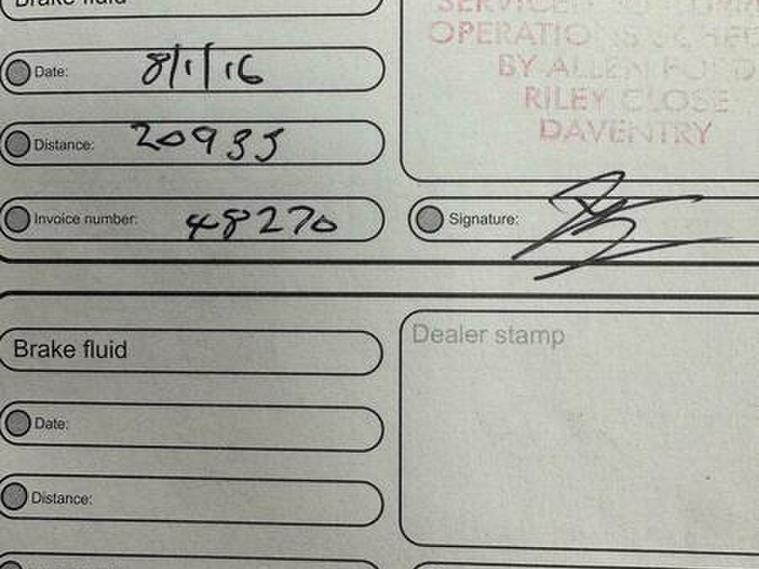 Brake fluid
OPERATIONS SCHED
BY ALLEN FORD
RILEY CLOSE
DAVENTRY
Date: 8/1/16
Distance: 20935
Invoice number: 48270
Signature:
Brake fluid
Dealer stamp
Date:
Distance: